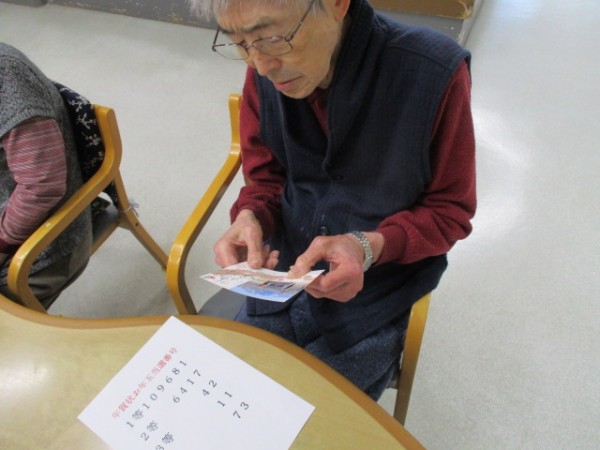 年賀状お年玉当選番号
1等109681
2等 6417
3等 42
11
73